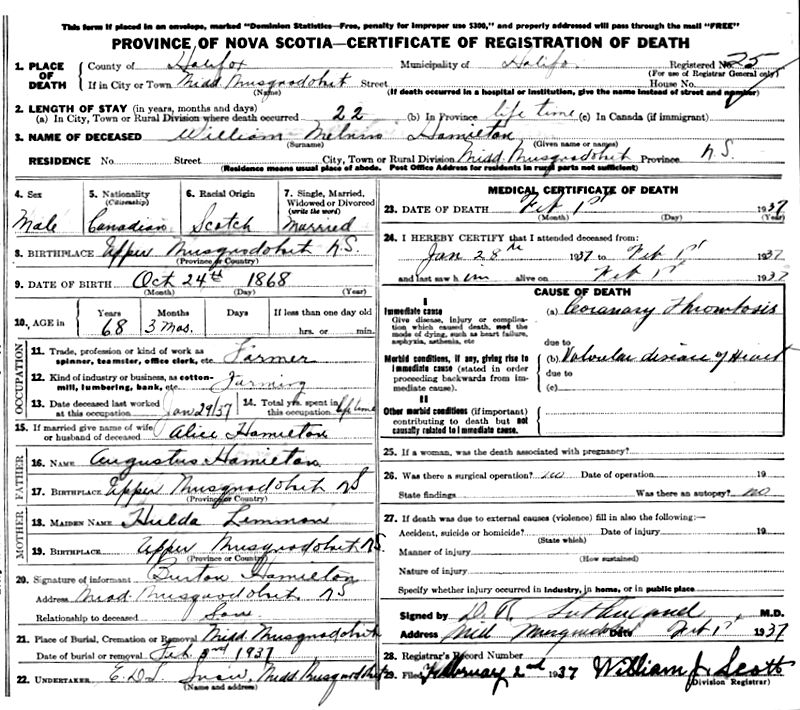 This form if placed in an envelope, marked "Dominion Statistics—Free, penalty for improper use $300," and properly addressed will pass through the mail "FREE"
PROVINCE OF NOVA SCOTIA—CERTIFICATE OF REGISTRATION OF DEATH
1. PLACE OF DEATH County of Halifax Municipality of Halifax Registered No. 25
(For use of Registrar General only)
If in City or Town Midd Musquodobit Street House No.
(Name) (If death occurred in a hospital or institution, give the name instead of street and number)
2. LENGTH OF STAY (in years, months and days)
(a) In City, Town or Rural Division where death occurred 22 (b) In Province life time (c) In Canada (if immigrant)
3. NAME OF DECEASED William Hamilton
(Surname) (Given name or names)
RESIDENCE No. Street City, Town or Rural Division Midd Musquodobit Province N.S.
(Residence means usual place of abode. Post Office Address for residents in rural parts not sufficient)
4. Sex Male
5. Nationality (Citizenship) Canadian
6. Racial Origin Scotch
7. Single, Married, Widowed or Divorced (write the word) Married
8. BIRTHPLACE Upper Musquodobit N.S.
(Province or Country)
9. DATE OF BIRTH Oct 24th 1868
(Month) (Day) (Year)
10. AGE in Years 68 Months 3 Mos. Days If less than one day old hrs. or min.
OCCUPATION
11. Trade, profession or kind of work as spinner, teamster, office clerk, etc. Farmer
12. Kind of industry or business, as cotton-mill, lumbering, bank, etc. Farming
13. Date deceased last worked at this occupation Jan 29/37
14. Total yrs. spent in this occupation life time
15. If married give name of wife or husband of deceased Alice Hamilton
FATHER
16. NAME Augustus Hamilton
17. BIRTHPLACE Upper Musquodobit N S
(Province or Country)
MOTHER
18. MAIDEN NAME Hulda Lemmon
19. BIRTHPLACE Upper Musquodobit N.S.
(Province or Country)
20. Signature of informant Burton Hamilton
Address Midd Musquodobit N S
Relationship to deceased Son
21. Place of Burial, Cremation or Removal Midd Musquodobit
Date of burial or removal Feb 1937
22. UNDERTAKER Midd Musquodobit
(Name and address)
MEDICAL CERTIFICATE OF DEATH
23. DATE OF DEATH Feb 1st 1937
(Month) (Day) (Year)
24. I HEREBY CERTIFY that I attended deceased from:
Jan 28th 1937 to Feb 1st 1937
and last saw him alive on Feb 1st 1937
CAUSE OF DEATH
I
Immediate cause
Give disease, injury or complication which caused death, not the mode of dying, such as heart failure, asphyxia, asthenia, etc
(a) Coronary Thrombosis
due to
Morbid conditions, if any, giving rise to immediate cause (stated in order proceeding backwards from immediate cause).
(b) Valvular disease of Heart
due to
(c)
II
Other morbid conditions (if important) contributing to death but not causally related to immediate cause.
25. If a woman, was the death associated with pregnancy?
26. Was there a surgical operation? no Date of operation 19
State findings Was there an autopsy? no
27. If death was due to external causes (violence) fill in also the following:—
Accident, suicide or homicide? Date of injury 19
(State which)
Manner of injury
(How sustained)
Nature of injury
Specify whether injury occurred in industry, in home, or in public place
Signed by D. R. Sutherland M.D.
Address Midd Musquodobit Date Feb 1st 1937
28. Registrar's Record Number
29. Filed February 2nd 1937 William J. Scott
(Division Registrar)